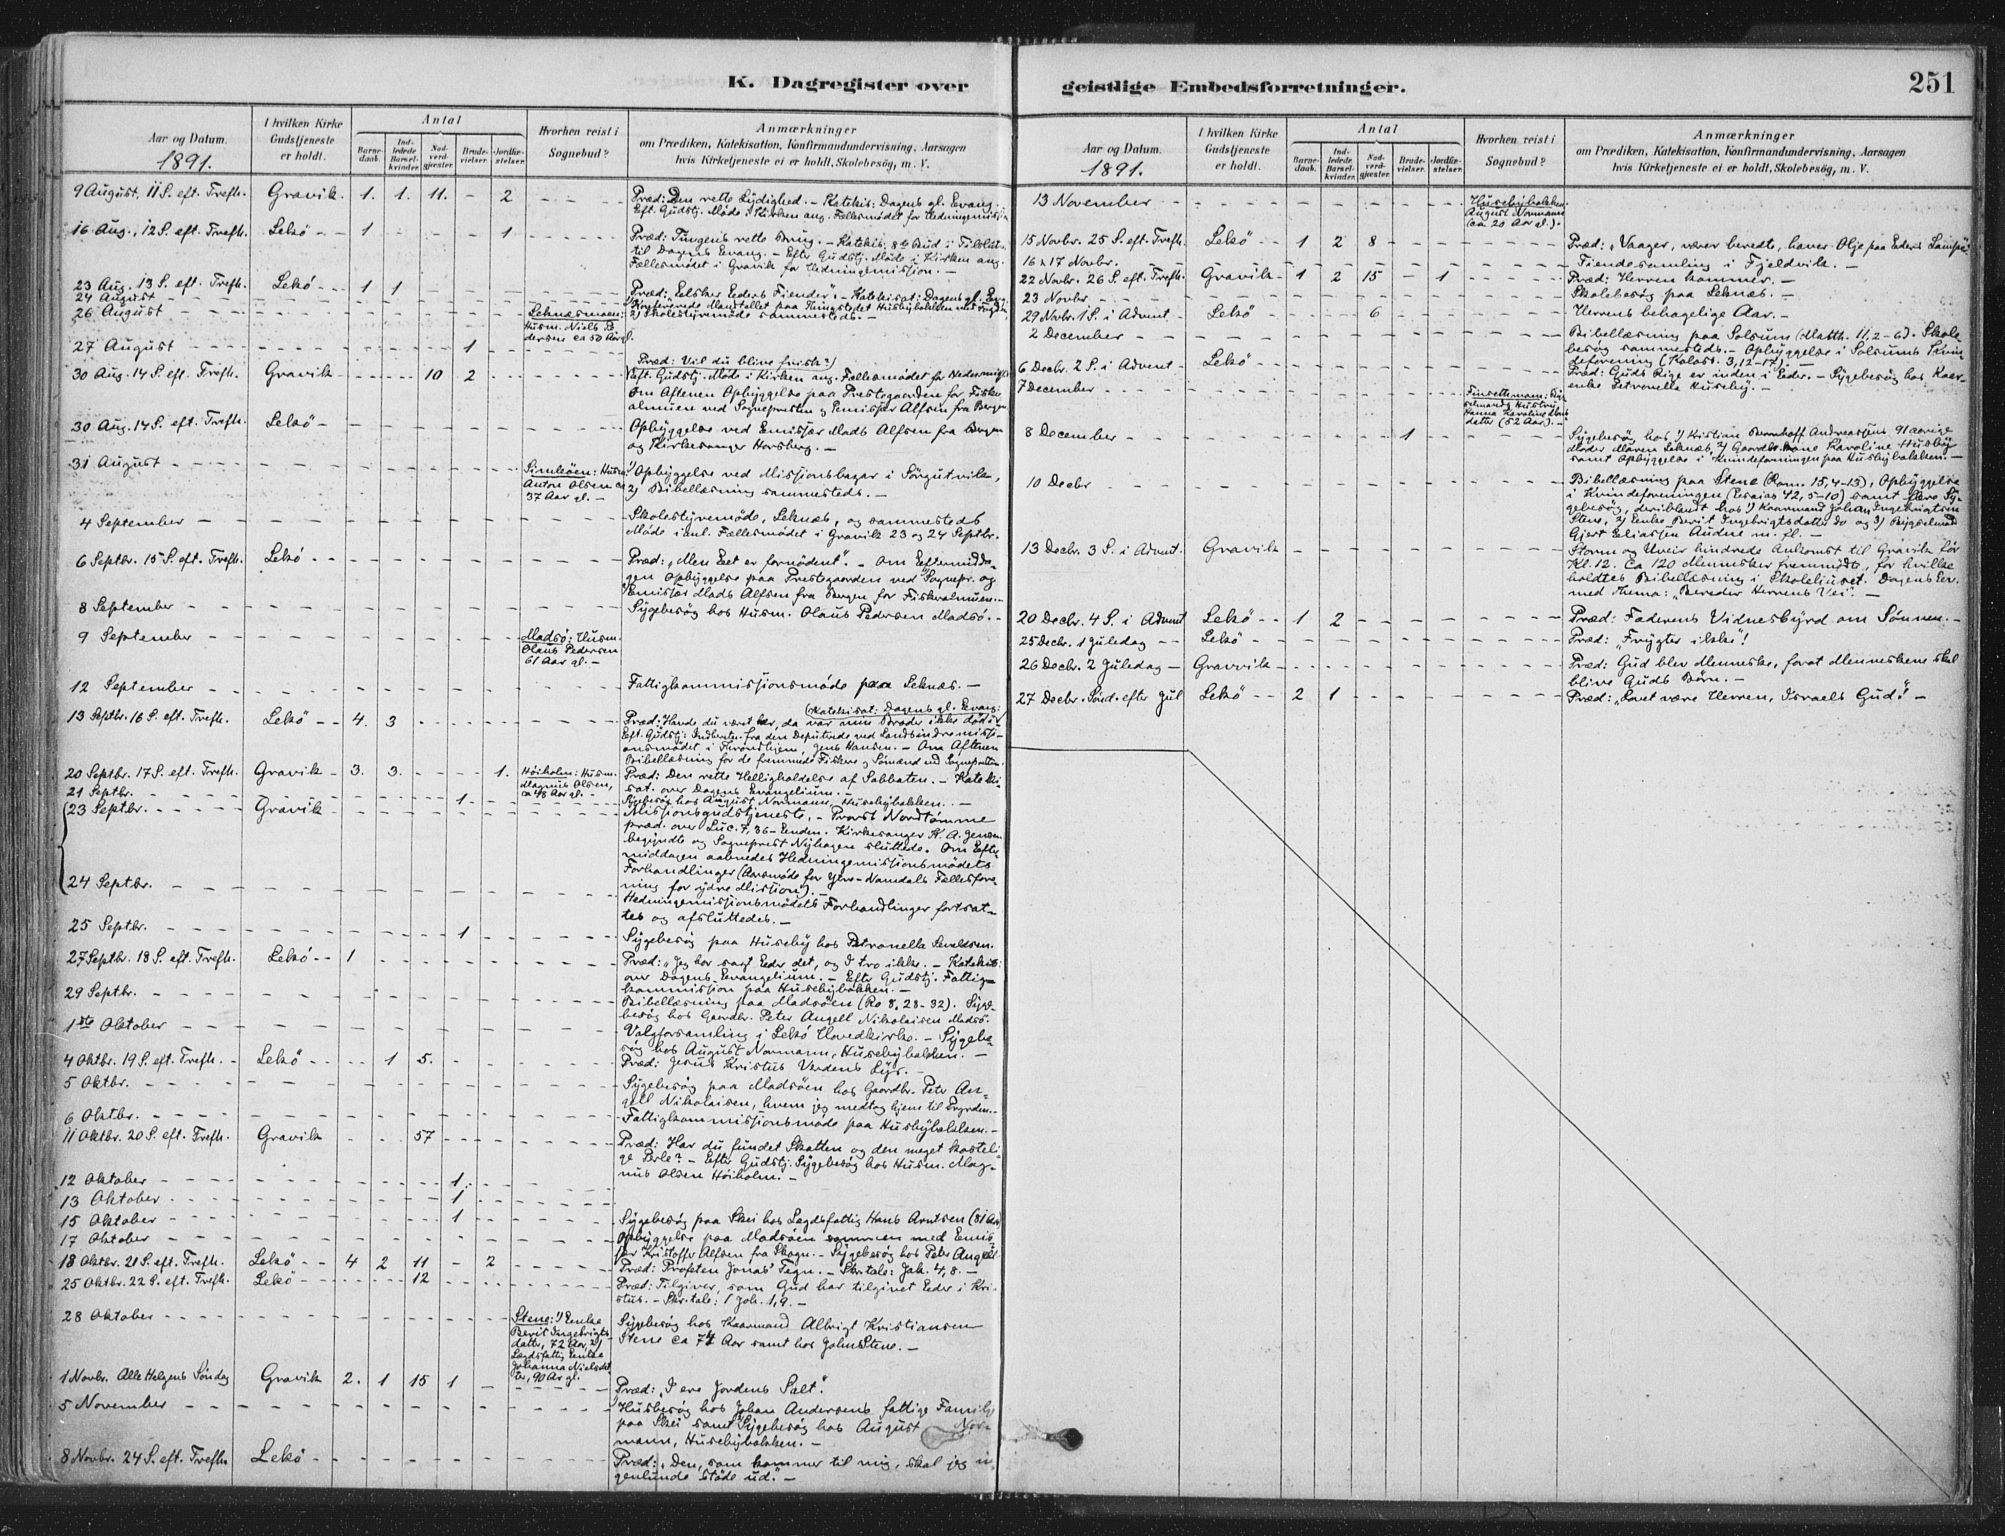 K. Dagregister over
Aar og Datum.
1891.
I hvilken Kirke Gudstjeneste er holdt.
Antal
Barnedaab.
Indledede Barselkvinder.
Nadverdgjester
Brudevielser.
Jordfæstelser.
Hvorhen reist i Sognebud?
Anmærkninger
om Prædiken, Katekisation, Konfirmandundervisning, Aarsagen
hvis Kirketjeneste ei er holdt, Skolebesøg, m. V.
9 August, 11 S. eft. Trefh. Gravik. 1. 1. 11. - 2 Præd: Den rette Lydighed. - Katekis: Dagens gl. Evang.
Eft. Gudstj. Møde i Kirken ang. Fællesmødet for Hedningemission
16 Aug., 12 S. eft. Trefh. Lekö 1 1 Præd: Tungens rette Brug. - Katekis: 8de Bud i Tilslut.
til Dagens Evang. - Efter Gudstj. Møde i Kirken ang.
Fællesmødet i Gravik for Hedningemission. -
23 Aug. 13 S. eft. Trefh. Lekö 1 1 Præd: "Elsker Eders Fiender". - Katekisat: Dagens gl. Evg.
24 August
26 August Leknæsmoen: 2) Skolestyremøde sammesteds. -
Husm. Niels Pedersen ca 50 Aar gl.
27 August 1
Præd: Vil du blive frisk?
30 Aug. 14 S. eft. Trefh. Gravik 10 2 Eft. Gudstj. Møde i Kirken ang. Fællesmødet for Hedningm.
Om Aftenen Opbyggelse paa Prestegaarden for Fiskealmuen ved Sognepresten og Emissær Alfsen fra Bergen
30 Aug. 14 S. eft. Trefh. Lekö Opbyggelse ved Emissær Mads Alfsen fra Bergen
og Kirkesanger Horsberg. -
31 August Simleöen: Husm. Anton Olsen ca 37 Aar gl. - 1) Opbyggelse ved Missionsbazar i Sörgutvik,
2) Bibellæsning sammesteds. -
4 September Skolestyremøde, Leknæs, og sammesteds
Møde i anl. Fællesmødet i Gravik 23 og 24 Septbr.
6 Septbr. 15 S. eft. Trefh. Lekö Præd: "Men Eet er fornødent". - Om Eftermiddagen Opbyggelse paa Prestegaarden ved Sognepr. og
Emissær Mads Alfsen fra Bergen for Fiskealmuen. -
8 September Sygebesøg hos Husm. Olaus Pedersen Madsö. -
9 September Madsö: Husm. Olaus Pedersen 61 Aar gl. -
12 September Fattigkommissionsmøde paa Leknæs. -
(Katekisat: Dagens gl. Evang:
13 Septbr. 16 S. eft. Trefh. Lekö 4. 3 Præd: Havde du været her, da var min Broder ikke død.
Eft. Gudstj: Indberetn. fra den Deputerede ved Landsindremissionsmødet i Thronhjem, Jens Hansen. - Om Aftenen
Bibellæsning for de fremmede Fiskere og Sømænd ved Sognepresten.
20 Septbr. 17 S. eft. Trefh. Gravik 3. 3. 1. Höiholm: Husm. Magnus Olsen, ca 48 Aar gl. - Præd: Den rette Helligholdelse af Sabbaten. - Katekisat. over Dagens Evangelium. -
21 Septbr. 1 Sygebesøg hos August Normann, Husebybakken. -
23 Septbr. Gravik Missionsgudstjeneste. - Provst Nordtømme
præd. over Luc. 7, 36 - Enden. Kirkesanger K. A. Jensen
begyndte og Sogneprest Nyhagen sluttede. Om Eftermiddagen aabnedes Hedningemissionsmødets
Forhandlinger (Aarsmøde for Ytre-Namdals Fællesforening for ydre Mission). -
24 Septbr. Hedningemissionsmødets Forhandlinger fortsattes og afsluttedes. -
25 Septbr. 1 Sygebesøg paa Huseby hos Petronella
27 Septbr. 18 S. eft. Trefh. Lekö 1 Præd: "Jeg har sagt Eder det, og I tro ikke. - Katekis:
over Dagens Evangelium. - Efter Gudstj. Fattigkommission paa Husebybakken. -
29 Septbr. Bibellæsning paa Madsöen (Ro 8, 28-32). Sygebesøg hos Gaardbr. Peter Angell Nikolaisen Madsö.
1ste Oktober Valgforsamling i Lekö Hovedkirke. - Sygebesøg hos August Normann, Husebybakken. -
4 Oktbr. 19 S. eft. Trefh. Lekö 1 5. Præd: Jesus Kristus Verdens Lys. -
5 Oktbr. Sygebesøg paa Madsöen hos Gaardbr. Petr Angell Nikolaisen, hvem jeg medtog hjem til
6 Oktbr. Fattigkommissionsmøde paa Husebybakken. -
11 Oktbr. 20 S. eft. Trefh. Gravik 57 Præd: Har du fundet Skatten og den meget kostelige Perle? - Efter Gudstj. Sygebesøg hos Husm. Magnus Olsen Höiholm. -
12 Oktober 1.
13 Oktober 1
15 Oktober 1 Sygebesøg paa Skei hos Lægdsfattig Hans Arntsen (81 Aar)
17 Oktober Opbyggelse paa Madsöen sammen med Emissær Kristoffer Alfsen fra Skogn. - Sygebesøg hos Peter Angell
18 Oktbr. 21 S. eft. Trefh. Lekö 4 2 11 - 2 Præd: Profeten Jonas' Tegn. - Skr.tale: Jak. 4, 8. -
25 Oktbr. 22 S. eft. Trefh. Lekö 12 Præd: Tilgiver, som Gud har tilgivet Eder i Kristus. - Skr.tale: 1 Joh. 1, 9. -
28 Oktober Stene: 1) Enke Berit Ingebrigtsdatter, 72 Aar, 2) Lægdsfattig Enke Johanna Nielsdatter, 90 Ar gl. Sygebesøg hos Kaarmand Albrigt Kristiansen
Stene ca 74 Aar samt hos John Stene. -
1 Novbr. Alle Helgens Søndag Gravik 2. 1 15 1 Præd: "I ere Jordens Salt".
5 November Husbesøg hos Johan Andersens fattige Family
paa Skei samt Sygebesøg hos August Normann, Husebybakken. -
8 Novbr. 24 S. eft. Trefh. Lekö Præd: "Den, som kommer til mig, skal jeg ingenlunde støde ud". -
geistlige Embedsforretninger. 251
Aar og Datum.
1891.
I hvilken Kirke Gudstjeneste er holdt.
Antal
Barnedaab.
Indledede Barselkvinder.
Nadverdgjester.
Brudevielser.
Jordfæstelser.
Hvorhen reist i Sognebud?
Anmærkninger
om Prædiken, Katekisation, Konfirmandundervisning, Aarsagen
hvis Kirketjeneste ei er holdt, Skolebesøg, m. V.
13 November Husebybakken: August Normann (ca 20 Aar gl.).
15 Novbr. 25 S. eft. Trefh. Lekö 1 2 8 Præd: "Vaager, værer beredte, haver Olje paa Eders Lamper
16 & 17 Novbr. Fiendesamling i Fjeldvik. -
22 Novbr. 26 S. eft. Trefh. Gravik 1 2 15 - 1 Præd: Herren kommer. -
23 Novbr Skolebesøg paa Leknæs. -
29 Novbr. 1 S. i Advent Lekö 6 Herrens behagelige Aar. -
2 December Bibellæsning paa Solsum (Matth. 11, 2-6). Skolebesøg sammesteds. - Opbyggelse i Solsums Kvindeforening (Kolos. 3, 12-17). -
6 Decbr. 2 S. i Advent Lekö Præd: Guds Rige er inden i Eder. - Sygebesøg hos Kaarenke Petronelle Huseby. -
7 December Hanna Karoline datter (52 Aar). -
8 December 1 Sygebesøg hos 1) Kristian Bernhoff Andreassens 91aarige
Moder Maren Leknæs, 2) Gaardbr.kone Karoline Huseby
samt Opbyggelse i Kvindeforeningen paa Husebybakken. -
10 Decbr Bibellæsning paa Stene (Rom. 15, 4-13), Opbyggelse
i Kvindeforeningen (Esaias 42, 5-10) samt flere Sygebesøg, deriblandt hos 1) Kaarmand Johan Ingebrigtsen
Stene, 2) Enke Berit Ingebrigtsdatter do og 3) Bygselmand
Gjert Eliassen Audne m. fl. -
13 Decbr. 3 S. i Advent. Gravik Storm og Uveir hindrede Ankomst til Gravik før
Kl. 12. Ca 120 Mennesker fremmødte, for hvilke
holdtes Bibellæsning i Skolehuset. Dagens Ev.
med Thema: "Bereder Herrens Vei". -
20 Decbr. 4 S. i Advent Lekö 1 2 Præd: Faderens Vidnesbyrd om Sønnen. -
25 Decbr. 1 Juledag Lekö Præd: "Frygter ikke"!
26 Decbr. 2 Juledag Gravvik Præd: Gud blev Menneske, forat Menneskene skal
blive Guds Børn. -
27 Decbr. Sønd. efter Jul Lekö 2 1 Præd: "Lovet være Herren, Israels Gud". -